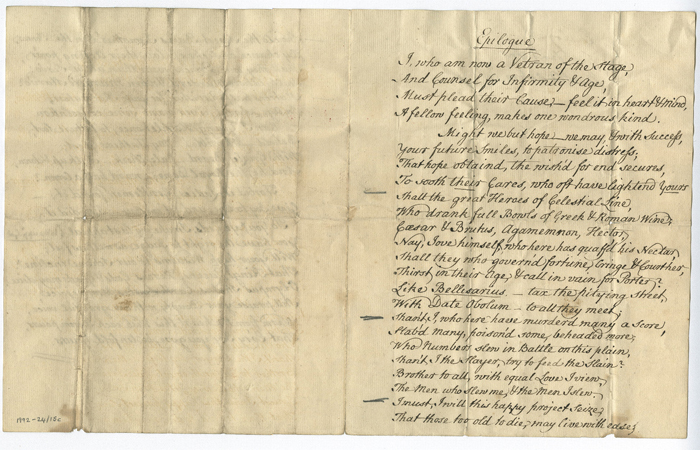 Epilogue
I, who am now a Vetran of the Stage,
And Counsel for Infirmity & Age,
Must plead their Cause,— feel it in heart & mind,
A fellow feeling, makes one wondrous kind.
Might we but hope — we may, & with Success,
Your future Smiles, to patronise distress,
That hope obtaind, the wish'd for end secures,
To sooth their Cares, who oft have lightend Yours
Shall the great Heroes of Celestial Line,
Who drank full Bowls of Greek & Roman Wine,
Cæsar & Brutus, Agamemnon, Hector,
Nay, Jove himself, who here has quaff'd his Nectar,
Shall they who governd fortune, Cringe & Court her,
Thirst in their Age, & call in vain for Porter?
Like Bellisarius — tax the pitying Street
With Date Obolum — to all they meet;
Shant I, who here have murderd many a score,
Stabd many, poisond some, beheaded more,
Who Numbers slew in Battle on this plain,
Shant I the Slayer, try to feed the Slain?
Brother to all, with equal Love I view,
The Men who slew me, & the Men I slew.
I must, I will this happy project Seize,
That those too old to die, may live with ease;
1992-24/15c